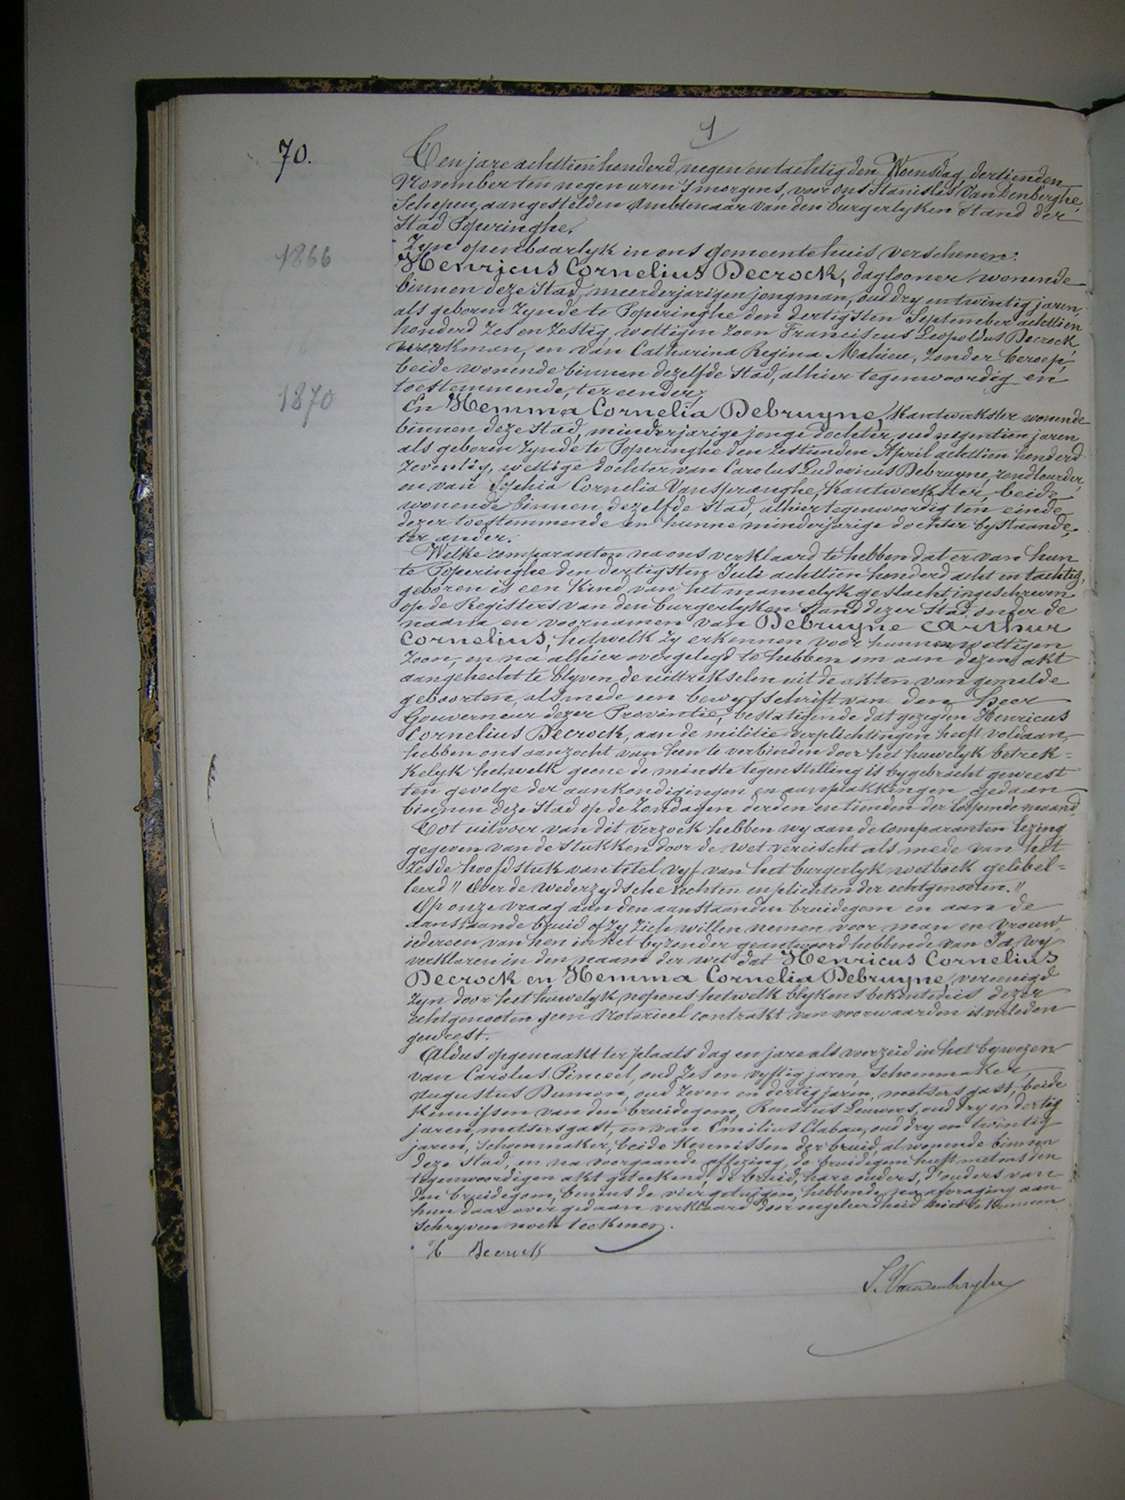 1
70.
Ten jare achttien honderd, negen en tachtig den Woensdag, dertienden
November ten negen uren 's morgens, voor ons Stanislas Van Denberghe,
Schepen, aangestelden Ambtenaar van den burgerlyken Stand der
Stad Poperinghe.
Zyn openbaarlyk in ons gemeentehuis verschenen:
1866
Henricus Cornelius Decrock, daglooner, wonende
binnen deze Stad, meerderjarigen jongman, oud dry en twintig jaren
als geboren zynde te Poperinghe den dertigsten September achttien
honderd zes en zestig, wettigen zoon Franciscus Leopoldus Decrock
werkman, en van Catharina Regina Mahieu, zonder beroep,
beide wonende binnen dezelfde Stad, alhier tegenwoordig en
toestemmende, ter eender;
1870
En Hemma Cornelia Debruyne, Kantwerkster wonende
binnen deze Stad, minderjarige jonge dochter, oud negentien jaren
als geboren zynde te Poperinghe den zestienden April achttien honderd
zeventig, wettige dochter van Carolus Ludovicus Debruyne,
en van Sophia Cornelia Vanspranghe, Kantwerkster, beide
wonende binnen dezelfde Stad, alhier tegenwoordig ten einde
dezer toestemmende en hunne minderjarige dochter bystaande,
ter ander.
Welke comparanten na ons verklaard te hebben dat er van hun
te Poperinghe den dertigsten Juli achttien honderd acht en tachtig,
geboren is een Kind van het mannelyk geslacht ingeschreven
op de Registers van den burgerlyken Stand dezer Stad, onder de
naam en voornamen van Debruyne Arthur
Cornelius, hetwelk zy erkennen voor hunnen wettigen
zoon, en na alhier overgelegd te hebben om aan dezen akt
aangehecht te blyven, de uittrekselen uit de akten van gemelde
geboorten, als mede een bewysschrift van den heer
Gouverneur dezer Provintie, bestatigende dat gezegden Henricus
Cornelius Decrock, aan de militie verplichtingen heeft voldaan,
hebben ons aanzocht van hen te verbinden door het huwelyk betrek-
kelyk hetwelk geene de minste tegenstelling is bygebracht geweest
ten gevolge der aankondigingen en aanplakkingen gedaan
binnen deze Stad op de Zondagen derden en tienden der loopende maand.
Tot uitvoer van dit verzoek hebben wy aan de comparanten lezing
gegeven van de stukken door de wet vereischt als mede van het
zesde hoofdstuk van titel vyf van het burgerlyk wetboek gelibel-
leerd " Over de wederzydsche rechten en plichten der echtgenooten. "
Op onze vraag aan den aanstaanden bruidegom en aan de
aanstaande bruid of zy zich willen nemen voor man en vrouw,
iedereen van hen in het byzonder geantwoord hebbende van Ja, wy
verklaren in den naam der wet dat Henricus Cornelius
Decrock en Hemma Cornelia Debruyne, vereenigd
zyn door het huwelyk, nopens hetwelk blykens bekentenis dezer
echtgenooten geen Notarieel contrakt van voorwaarden is verleden
geweest.
Aldus opgemaakt ter plaats dag en jare als voorzeid in het bywezen
van Carolus Pinceel, oud zes en vyftig jaren, Schoenmaker,
Augustus Dumon, oud zeven en dertig jaren, metsersgast, beide
Kennissen van den bruidegom, Renatus Leuwers, oud dry en dertig
jaren, metsersgast, en van Emilius Clabau, oud dry en twintig
jaren, Schoenmaker, beide Kennissen der bruid, al wonende binnen
deze Stad, en na voorgaande aflezing, de bruidegom heeft met ons den
tegenwoordigen akt geteekend, de bruid, hare ouders, d'ouders van
den bruidegom, benevens de vier getuigen, hebbende, na afvraging aan
hun daar over gedaan verklaard door ongeleerdheid niet te kunnen
schryven noch teekenen.
H Decrock
S. Vandenberghe